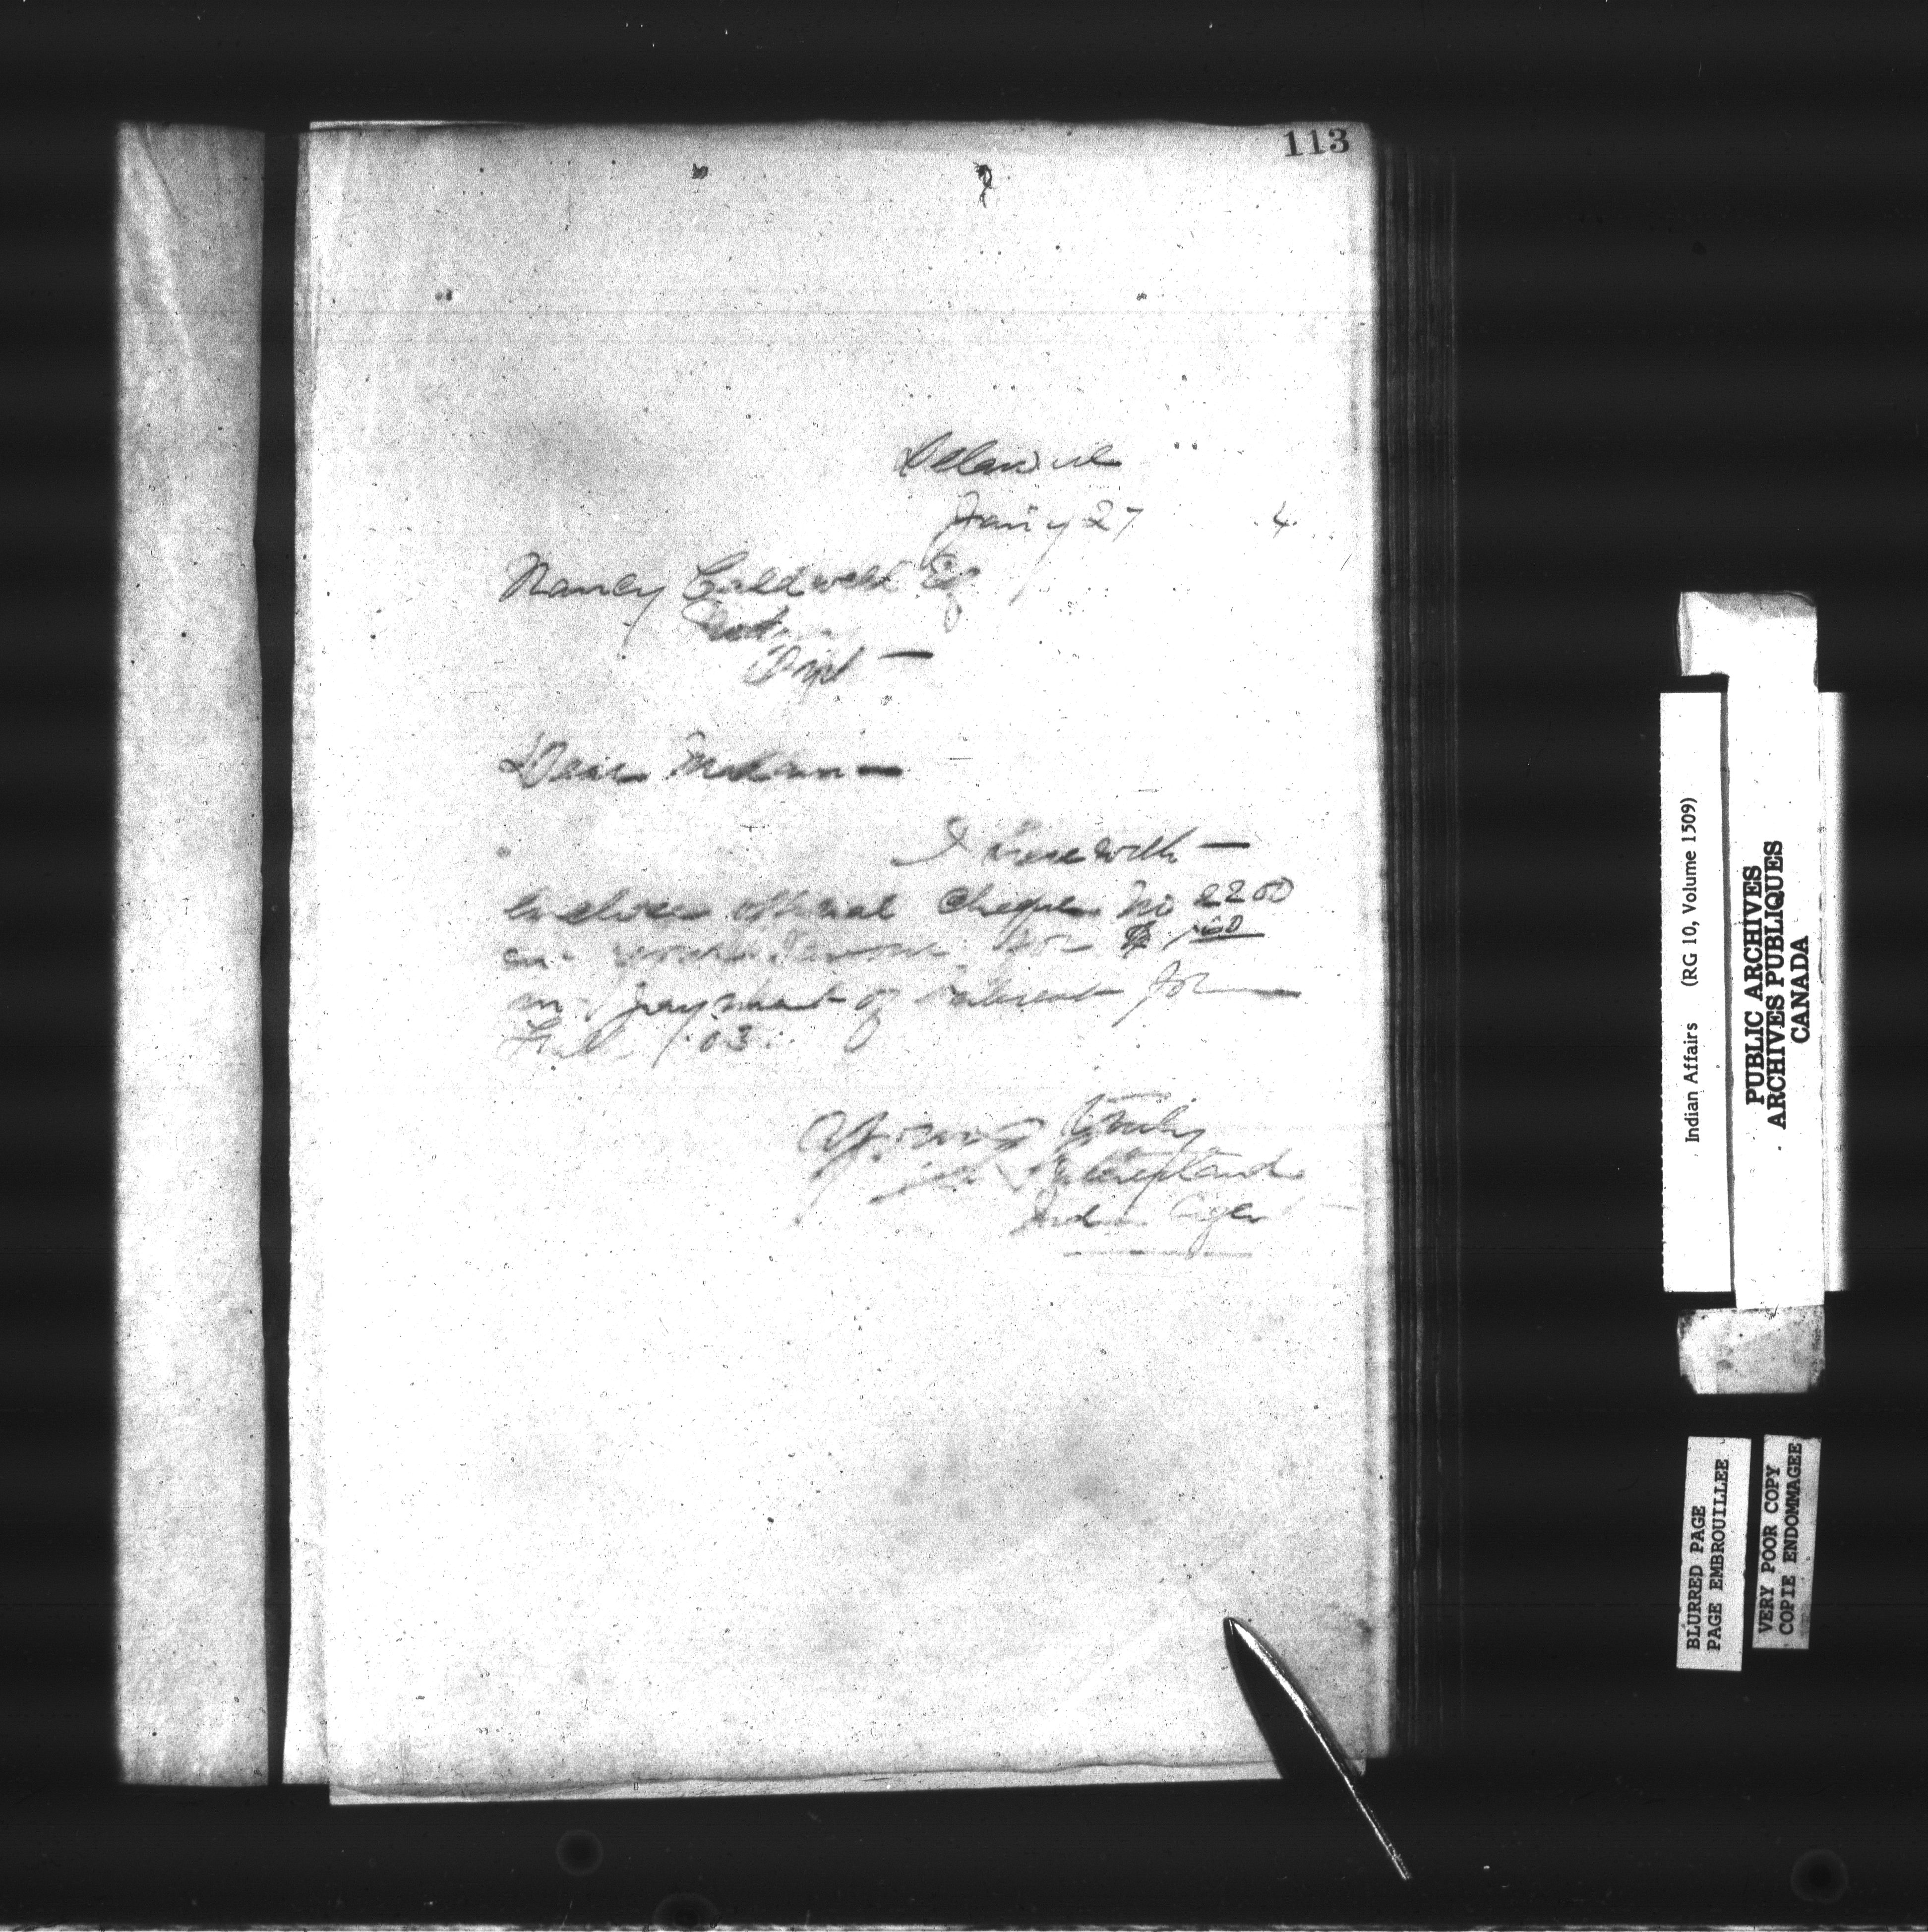 113
Delaware
Jany 27 4
Nancy Caldwell Esq
Ont
Dear Madam —
I herewith —
Enclose official Cheque No 2200
in your favour for $
in payment of interest for
Fall 03
Yours truly
Sutherland
Indian Agent
Indian Affairs (RG 10, Volume 1509)
PUBLIC ARCHIVES
ARCHIVES PUBLIQUES
CANADA
BLURRED PAGE
PAGE EMBROUILLEE
VERY POOR COPY
COPIE ENDOMMAGEE